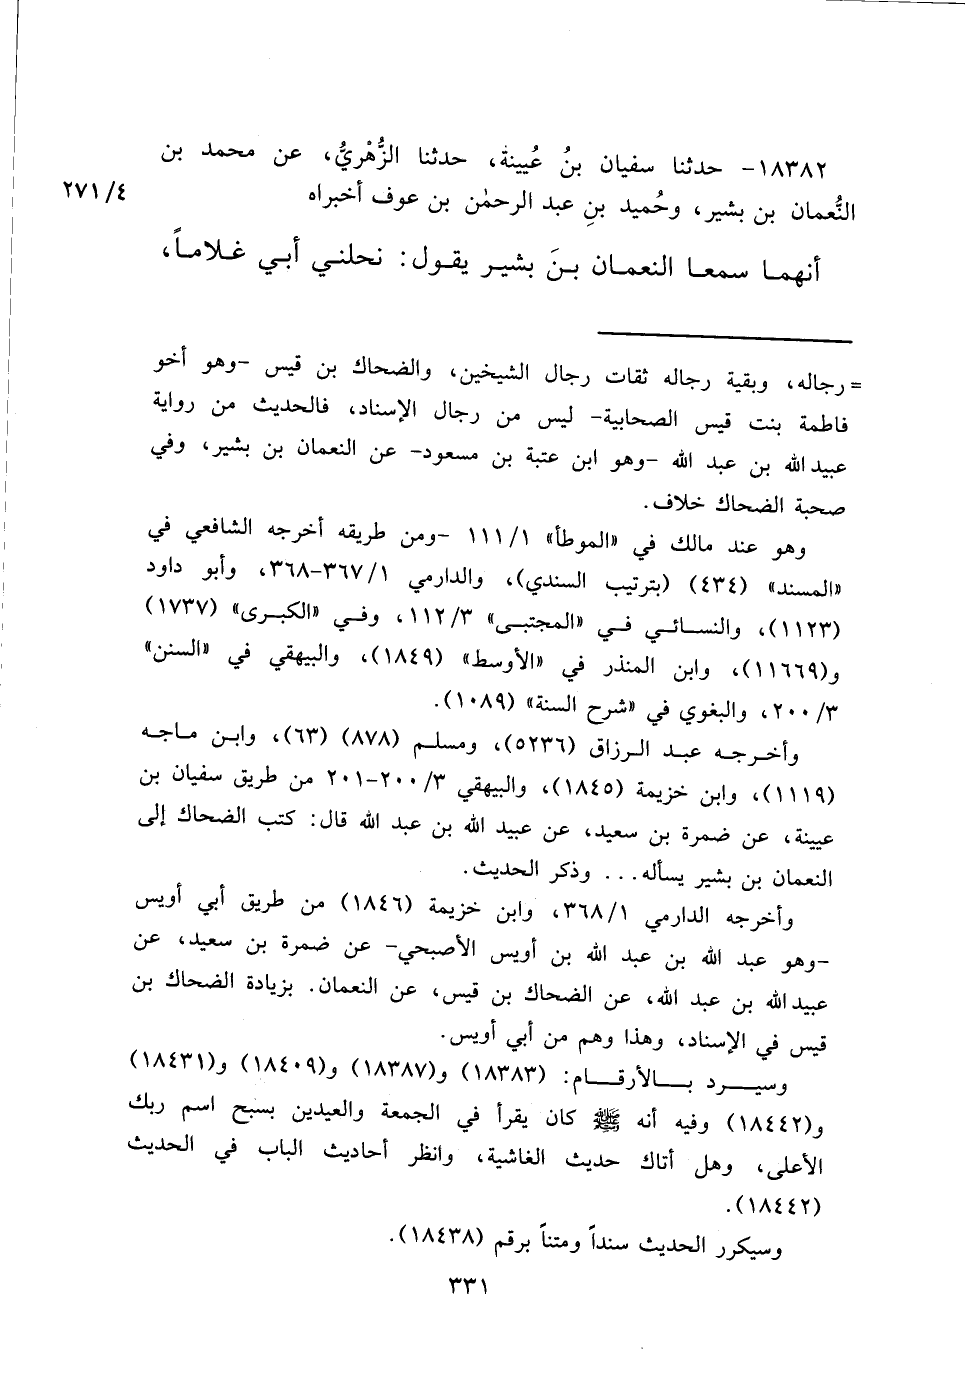 ١٨٣٨٢- حدثنا سفيان بنُ عُيينة، حدثنا الزُّهْريُّ، عن محمد بن
النُّعمان بن بشير، وحُميد بنِ عبد الرحمٰن بن عوف أخبراه
٢٧١/٤
أنهما سمعا النعمان بنَ بشير يقول: نحلني أبي غلاماً،
= رجاله، وبقية رجاله ثقات رجال الشيخين، والضحاك بن قيس -وهو أخو
فاطمة بنت قيس الصحابية- ليس من رجال الإسناد، فالحديث من رواية
عبيد الله بن عبد الله -وهو ابن عتبة بن مسعود- عن النعمان بن بشير، وفي
صحبة الضحاك خلاف.
وهو عند مالك في «الموطأ» ١١١/١ -ومن طريقه أخرجه الشافعي في
«المسند» (٤٣٤) (بترتيب السندي)، والدارمي ٣٦٧/١-٣٦٨، وأبو داود
(١١٢٣)، والنسائي في «المجتبى» ١١٢/٣، وفي «الكبرى» (١٧٣٧)
و(١١٦٦٩)، وابن المنذر في «الأوسط» (١٨٤٩)، والبيهقي في «السنن»
٢٠٠/٣، والبغوي في «شرح السنة» (١٠٨٩).
وأخرجه عبد الرزاق (٥٢٣٦)، ومسلم (٨٧٨) (٦٣)، وابن ماجه
(١١١٩)، وابن خزيمة (١٨٤٥)، والبيهقي ٢٠٠/٣-٢٠١ من طريق سفيان بن
عيينة، عن ضمرة بن سعيد، عن عبيد الله بن عبد الله قال: كتب الضحاك إلى
النعمان بن بشير يسأله... وذكر الحديث.
وأخرجه الدارمي ٣٦٨/١، وابن خزيمة (١٨٤٦) من طريق أبي أويس
-وهو عبد الله بن عبد الله بن أويس الأصبحي- عن ضمرة بن سعيد، عن
عبيد الله بن عبد الله، عن الضحاك بن قيس، عن النعمان. بزيادة الضحاك بن
قيس في الإسناد، وهذا وهم من أبي أويس.
وسيرد بالأرقام: (١٨٣٨٣) و(١٨٣٨٧) و(١٨٤٠٩) و(١٨٤٣١)
و(١٨٤٤٢) وفيه أنه ﷺ كان يقرأ في الجمعة والعيدين بسبح اسم ربك
الأعلى، وهل أتاك حديث الغاشية، وانظر أحاديث الباب في الحديث
(١٨٤٤٢).
وسيكرر الحديث سنداً ومتناً برقم (١٨٤٣٨).
٣٣١